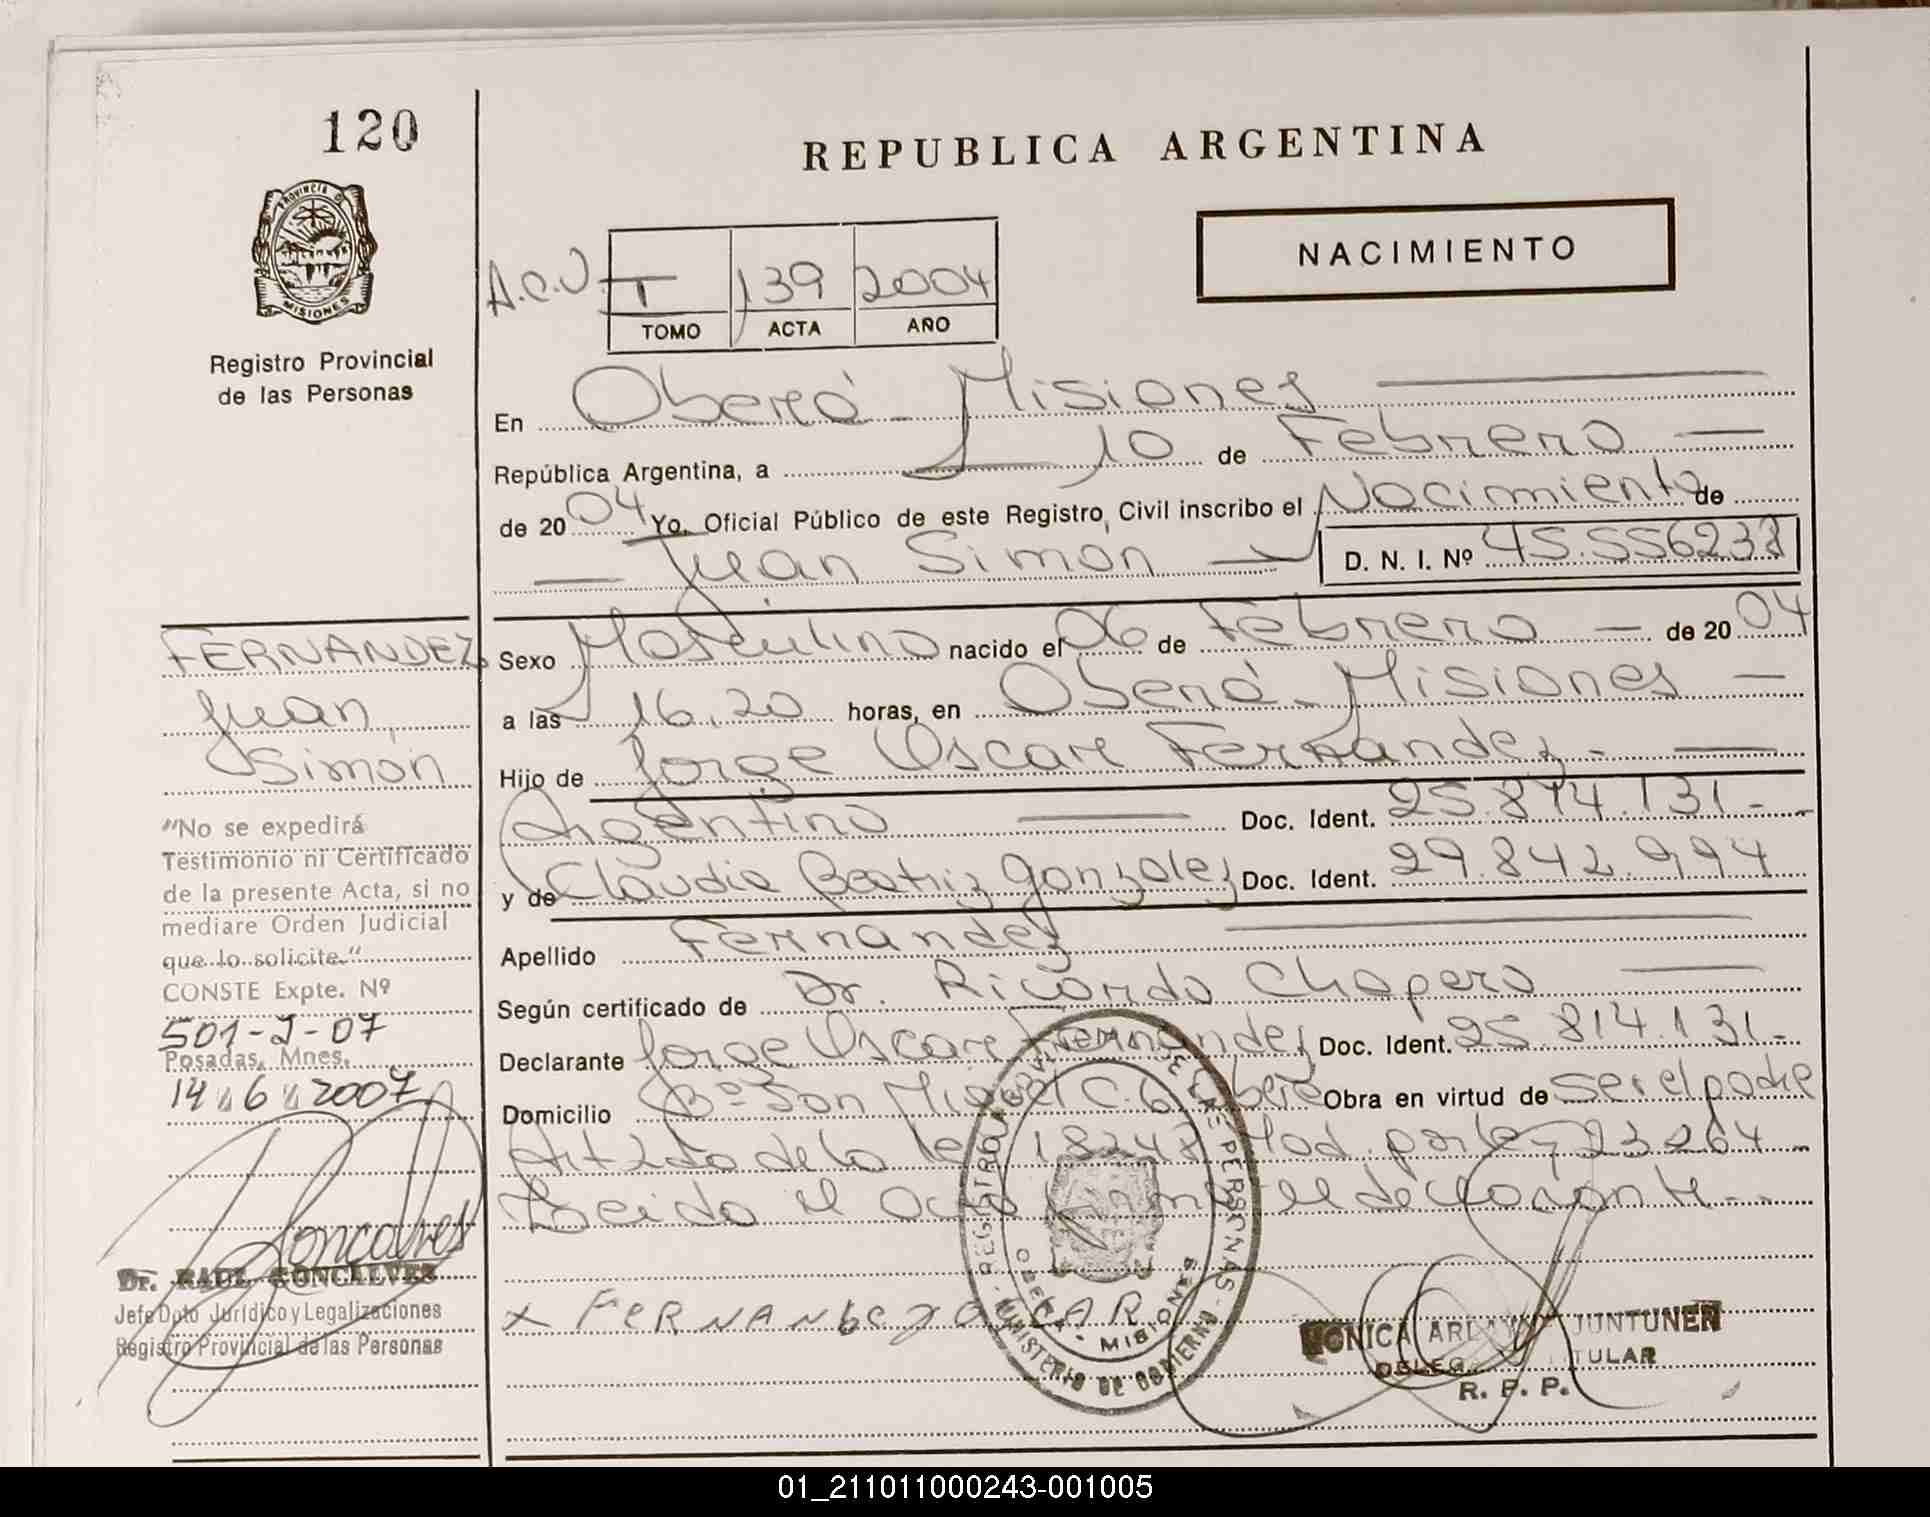 120
PROVINCIA DE
MISIONES
Registro Provincial
de las Personas
REPUBLICA ARGENTINA
NACIMIENTO
A.C.U T 139 2004
TOMO ACTA AÑO
En Oberá - Misiones
República Argentina, a 10 de Febrero
de 2004 Yo, Oficial Público de este Registro Civil inscribo el Nacimiento de
Juan Simón D. N. I. Nº 45.556238
Sexo Masculino nacido el 06 de Febrero de 2004
a las 16.20 horas, en Oberá - Misiones
Hijo de Jorge Oscar Fernandez
Argentino Doc. Ident. 25.814.131.-
y de Claudia Beatriz Gonzalez Doc. Ident. 29.842.994
Apellido Fernandez
Según certificado de Dr. Ricardo Chapero
Declarante Jorge Oscar Fernandez Doc. Ident. 25.814.131.-
Domicilio Bº San Miguel C. 6 Obra en virtud de ser el padre
de la ley 18248 Mod. por ley 23264
Leida el Acta el declarante
x FERNANDEZ OSCAR
FERNANDEZ
Juan
Simón
"No se expedirá
Testimonio ni Certificado
de la presente Acta, si no
mediare Orden Judicial
que lo solicite."
CONSTE Expte. Nº
501-J-07
Posadas, Mnes.
14 6 2007
Goncalves
Dr. RAUL GONCALVES
Jefe Dpto Jurídico y Legalizaciones
Registro Provincial de las Personas
REGISTRO PROVINCIAL DE LAS PERSONAS
OBERA - MISIONES
MINISTERIO DE GOBIERNO
MONICA JUNTUNEN
TITULAR
R. P. P.
01_211011000243-001005